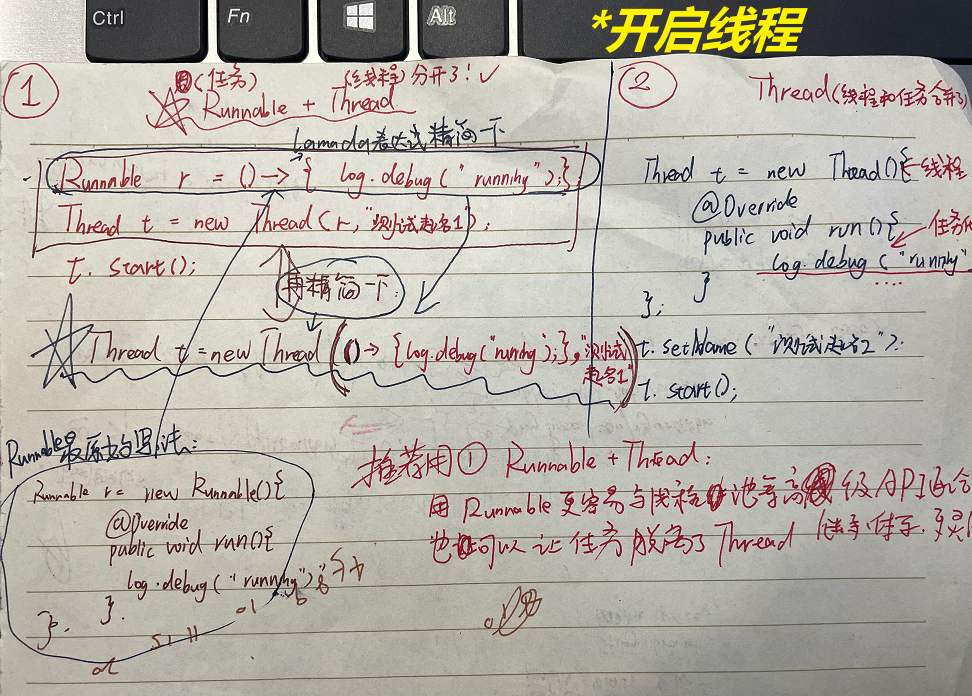 Ctrl
Fn
Alt
*开启线程
①
(任务) (线程) 分开了! ✓
Runnable + Thread
Lamada表达式精简一下
Runnable r = () -> { log.debug("running");};
Thread t = new Thread(r,"测试起名1");
t. start();
再精简一下
Thread t = new Thread(() -> {log.debug("running");},"测试起名1"
Runnable最原始的写法:
Runnable r = new Runnable(){
@Override
public void run(){
log.debug("running");
}
};
②
Thread(线程和任务合并了)
Thread t = new Thread(){ ←线程
@Override
public void run(){
任务
log.debug("running"
}
};
t. setName("测试起名2");
t. start();
推荐用① Runnable + Thread:
用 Runnable 更容易与线程池等高级API配合
也可以让任务脱离了Thread 更灵